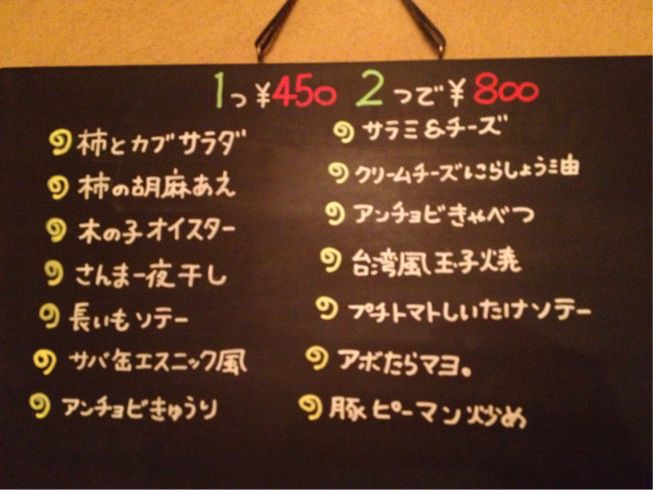 1つ¥450 2つで¥800
柿とカブサラダ
柿の胡麻あえ
木の子オイスター
さんま一夜干し
長いもソテー
サバ缶エスニック風
アンチョビきゅうり
サラミ&チーズ
クリームチーズにらしょう油
アンチョビきゃべつ
台湾風玉子焼
プチトマトしいたけソテー
アボたらマヨ。
豚ピーマン炒め